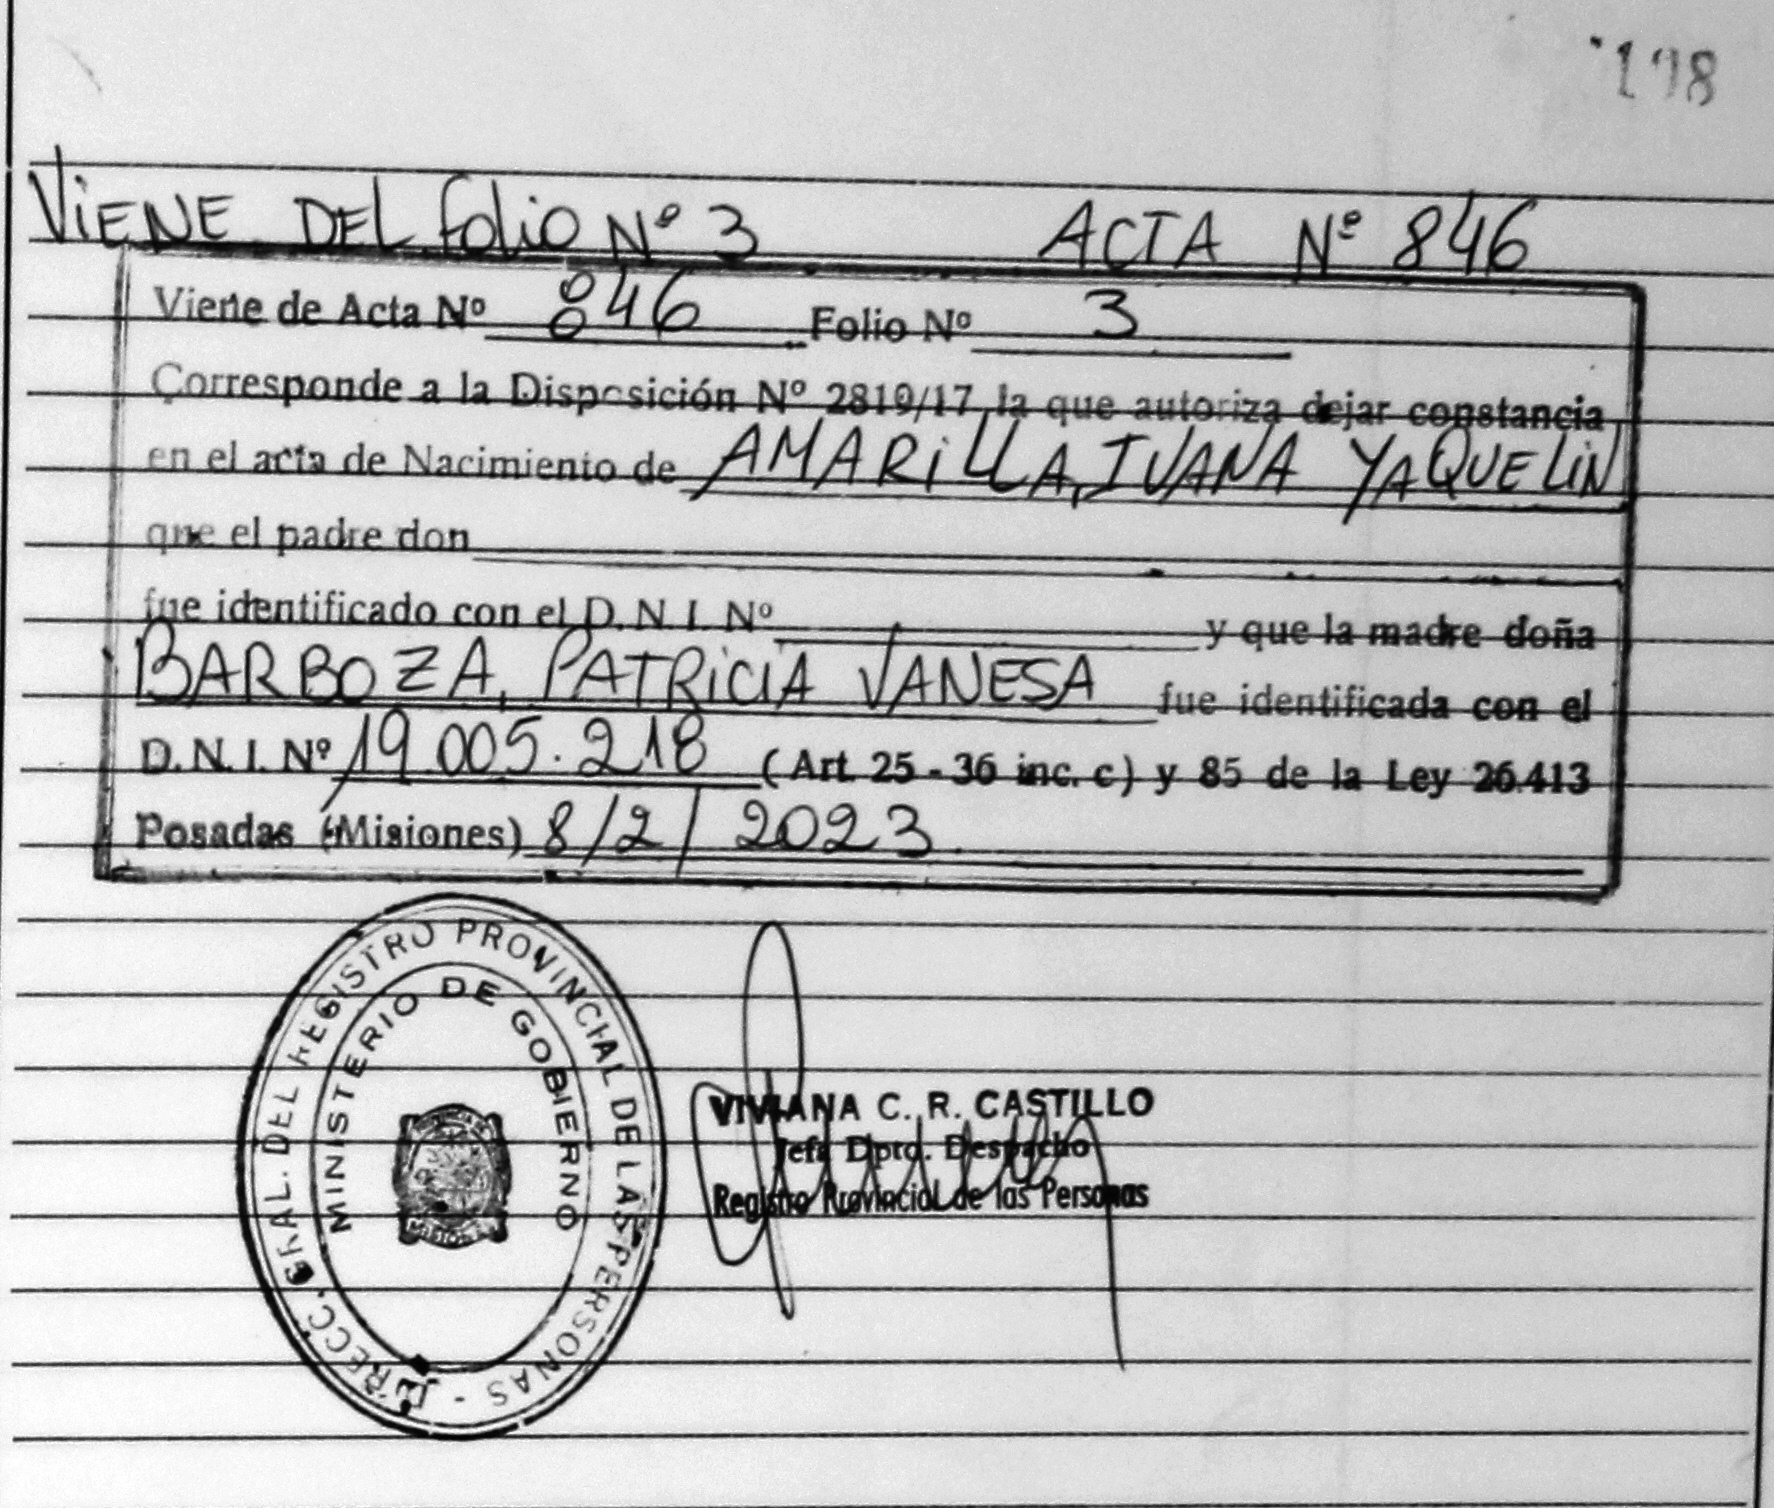 198
ViENE DEL folio Nº 3 ACTA Nº 846
Viene de Acta Nº 846 Folio Nº 3
Corresponde a la Disposición Nº 2819/17 la que autoriza dejar constancia
en el acta de Nacimiento de AMARiLLA, IVANA YAQUELiN
que el padre don
fue identificado con el D.N.I. Nº y que la madre doña
BARBOZA, PATRiCiA VANESA fue identificada con el
D.N.I. Nº 19.005.218 (Art. 25 - 36 inc. c) y 85 de la Ley 26.413
Posadas (Misiones) 8/2/2023
DIRECC. GRAL. DEL REGISTRO PROVINCIAL DE LAS PERSONAS -
MINISTERIO DE GOBIERNO
VIVIANA C. R. CASTILLO
Jefa Dpto. Despacho
Registro Provincial de las Personas